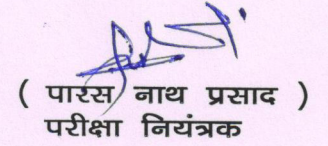 ( पारस नाथ प्रसाद )
परीक्षा नियंत्रक